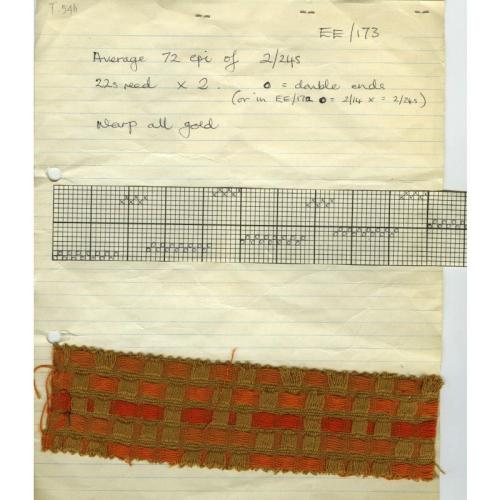 T.54h
EE/173
Average 72 epi of 2/24s
22s reed x 2. o = double ends
(or in EE/172 o = 2/14 x = 2/24s)
Warp all gold